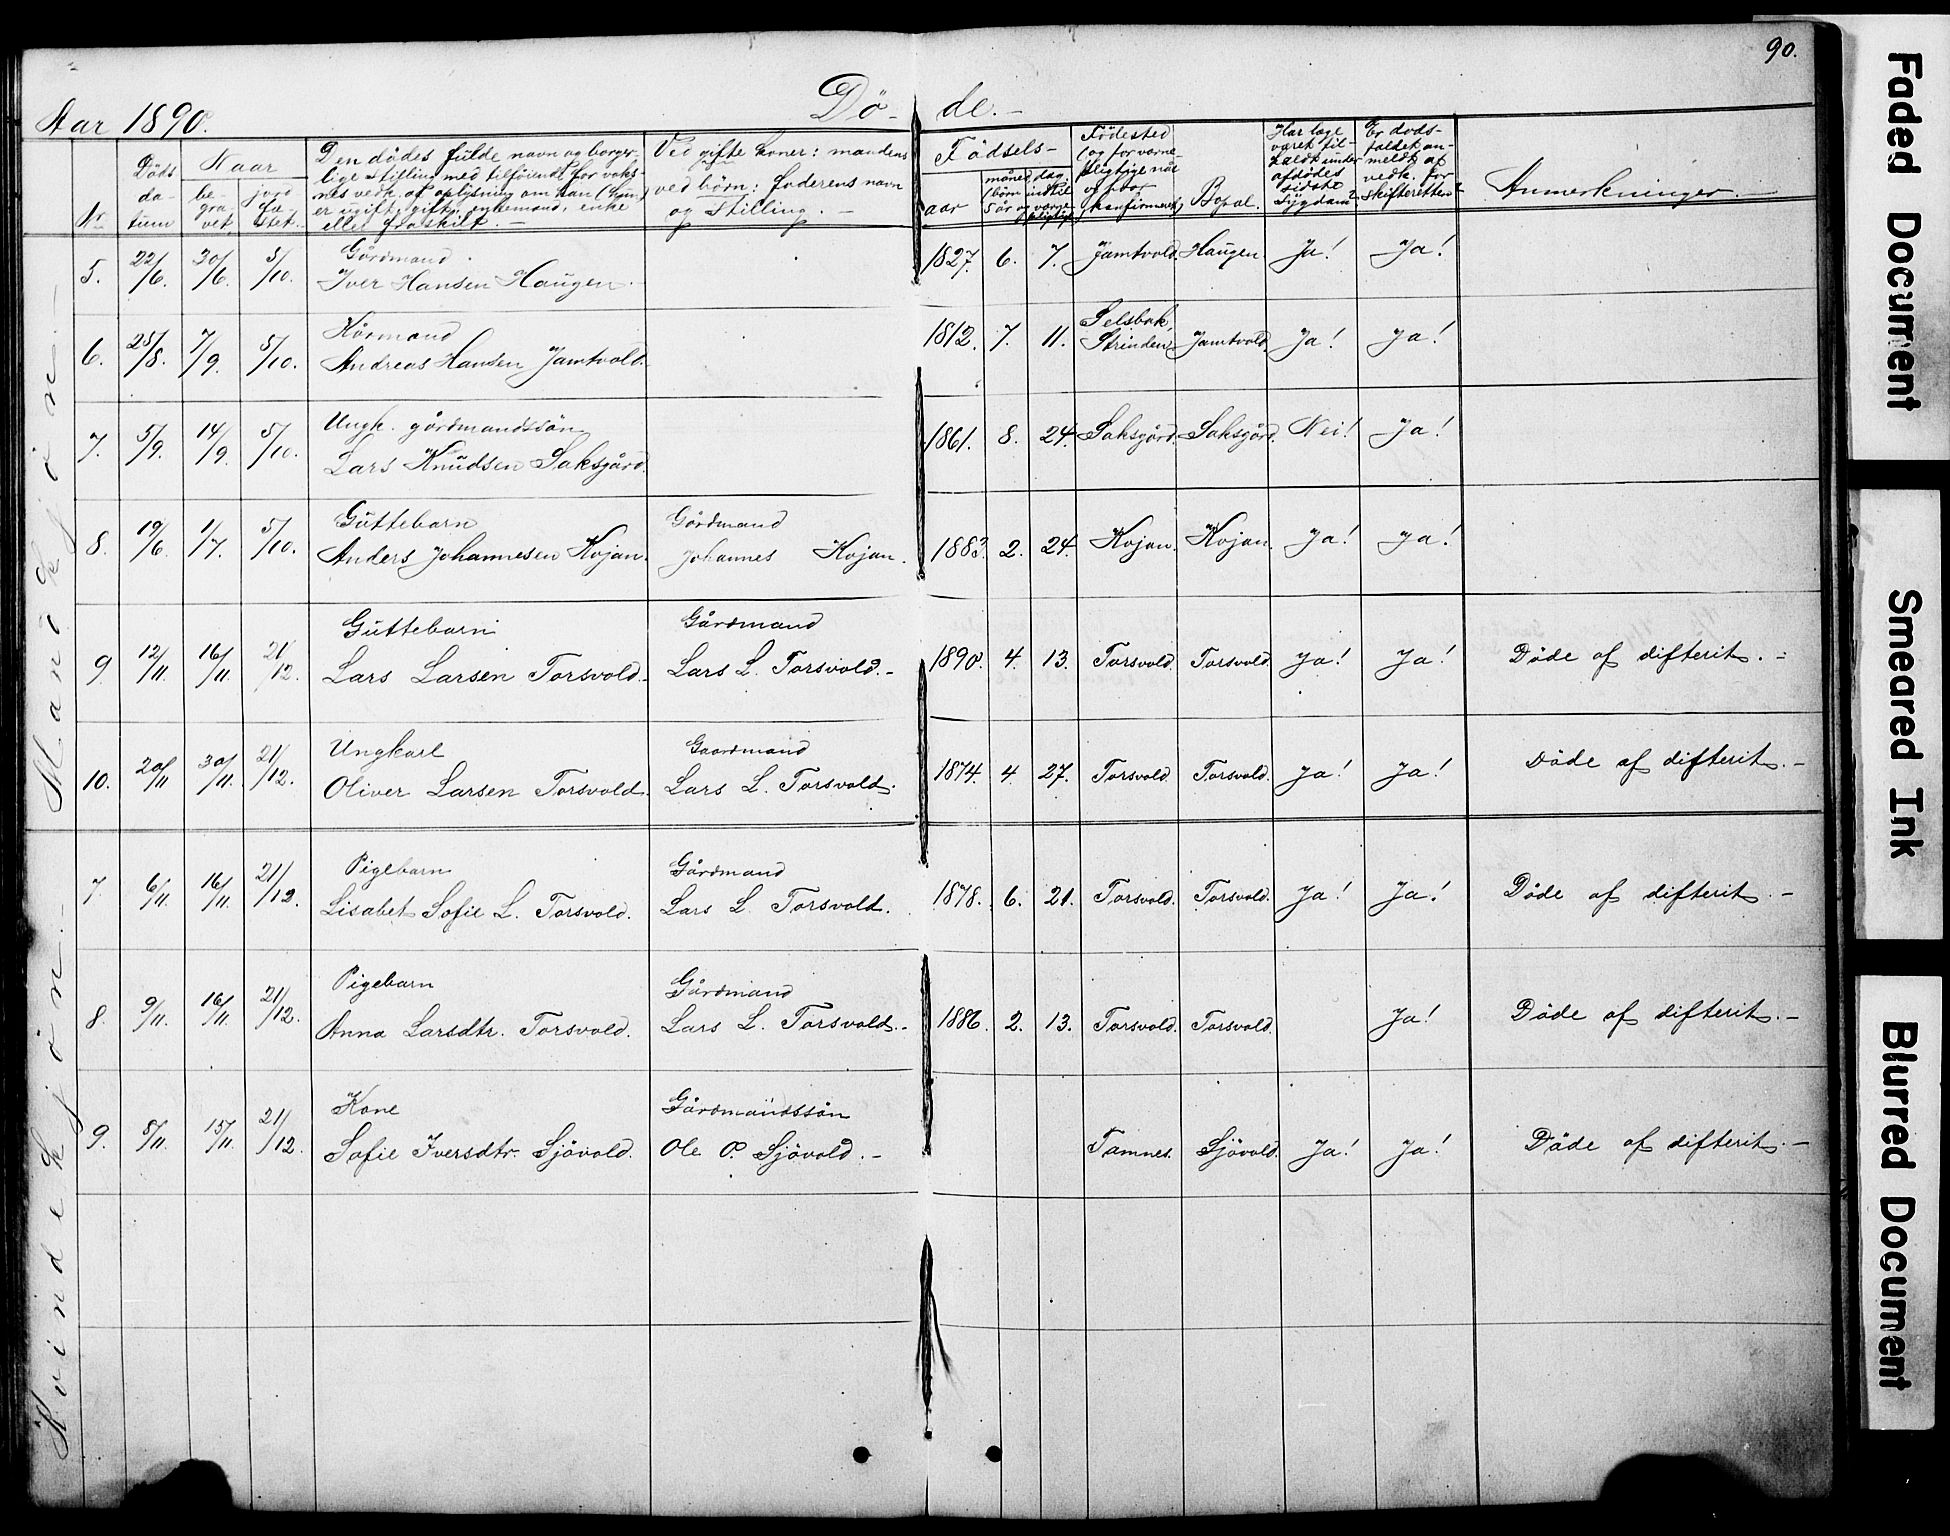 90.
Aar 1890.
Dö- de.-
Nr
Döds da- tum
Naar
be- gra- vet
jord fæ- stet.
Den dödes fulde navn og borger-
lige stilling med tilföiende for voks-
nes vedk. af oplysning om han (hun)
er ugift, gift, enkemand, enke
eller fraskilt. -
Ved gifte koner: mandens
ved börn: faderens navn
og Stilling. -
Födsels-
aar
måned, dag.
(börn indtil
5 år og værne-
pligtige)
Födested
(og for værne-
pligtige når
og hvor
konfirmeret)
Bopæl.
Har læge
været til-
kaldt under
afdödes
sidste
Sygdom?
Er döds-
faldet an-
meldt af
vedk. for
Skifteretten?
Anmerkninger.
Mandkjön. -
5. 22/6. 30/6. 5/10. Gårdmand
Iver Hansen Haugen. 1827. 6. 7. Jamtvold. Haugen. Ja! Ja!
6. 28/8. 7/9. 5/10. Kårmand
Andreas Hansen Jamtvold. 1812. 7. 11. Selsbak, Strinden Jamtvold. Ja! Ja!
7. 5/9. 14/9. 5/10. Ungk. gårdmandssön
Lars Knudsen Saksgård. 1861. 8. 24. Saksgård. Saksgård. Nei! Ja!
8. 19/6. 1/7. 5/10. Guttebarn Gårdmand
Anders Johannesen Kojan. Johannes Kojan. 1883. 2. 24. Kojan. Kojan. Ja! Ja!
9 12/11 16/11. 21/12. Guttebarn Gårdmand
Lars Larsen Torsvold.- Lars L. Torsvold.- 1890. 4. 13. Torsvold. Torsvold. Ja! Ja! Döde af difterit. -
10. 20/11 30/11. 21/12. Ungkarl Gaardmand
Oliver Larsen Torsvold. Lars L. Torsvold. 1874. 4 27. Torsvold. Torsvold. Ja! Ja! Döde af difterit. -
Kvindekjön. -
7. 6/11. 16/11. 21/12. Pigebarn Gårdmand
Lisabet Sofie L. Torsvold. Lars L. Torsvold. 1878. 6. 21. Torsvold. Torsvold. Ja! Ja! Döde af difterit. -
8. 9/11. 16/11. 21/12. Pigebarn Gårdmand
Anna Larsdtr. Torsvold. Lars L. Torsvold.- 1886. 2. 13. Torsvold. Torsvold. Ja! Döde af difterit. -
9. 8/11. 15/11. 21/12. Kone Gårdmandssön
Sofie Iversdtr. Sjövold. Ole O. Sjövold. - Tamnes. Sjövold. Ja! Ja! Döde af difterit. -
Faded Document
Smeared Ink
Blurred Document